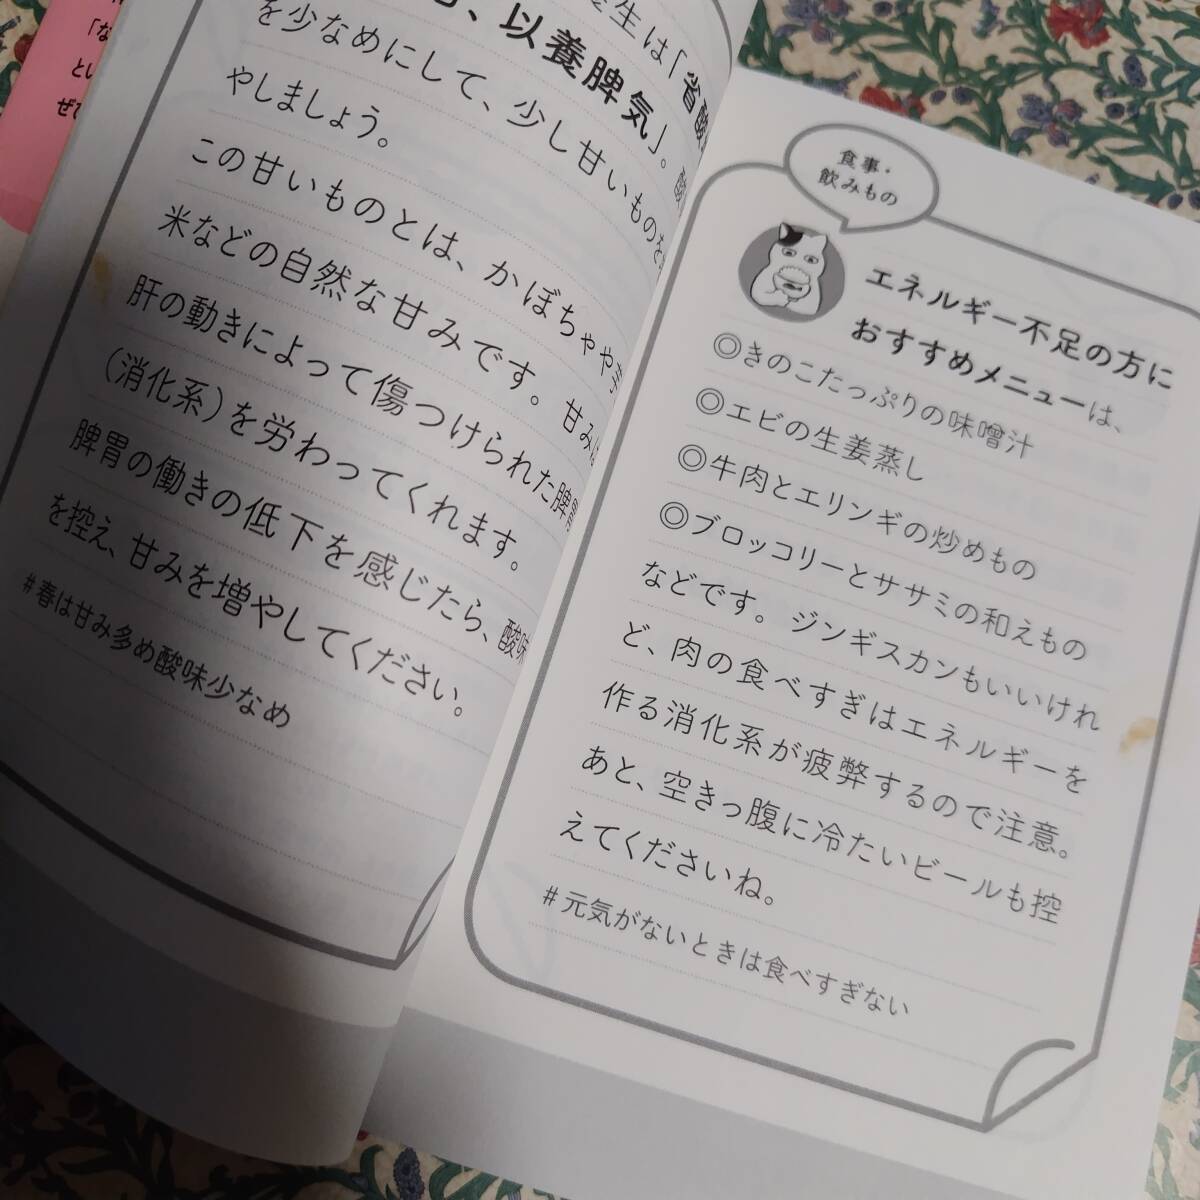 「な
とい
ぜひ
生は「省酸
、以養脾気」。酸
を少なめにして、少し甘いものを
やしましょう。
この甘いものとは、かぼちゃや芋
米などの自然な甘みです。甘みは
肝の動きによって傷つけられた脾胃
(消化系)を労わってくれます。
脾胃の働きの低下を感じたら、酸味
を控え、甘みを増やしてください。
#春は甘み多め酸味少なめ
食事・
飲みもの
エネルギー不足の方に
おすすめメニューは、
◎きのこたっぷりの味噌汁
◎エビの生姜蒸し
◎牛肉とエリンギの炒めもの
◎ブロッコリーとササミの和えもの
などです。ジンギスカンもいいけれ
ど、肉の食べすぎはエネルギーを
作る消化系が疲弊するので注意。
あと、空きっ腹に冷たいビールも控
えてくださいね。
#元気がないときは食べすぎない